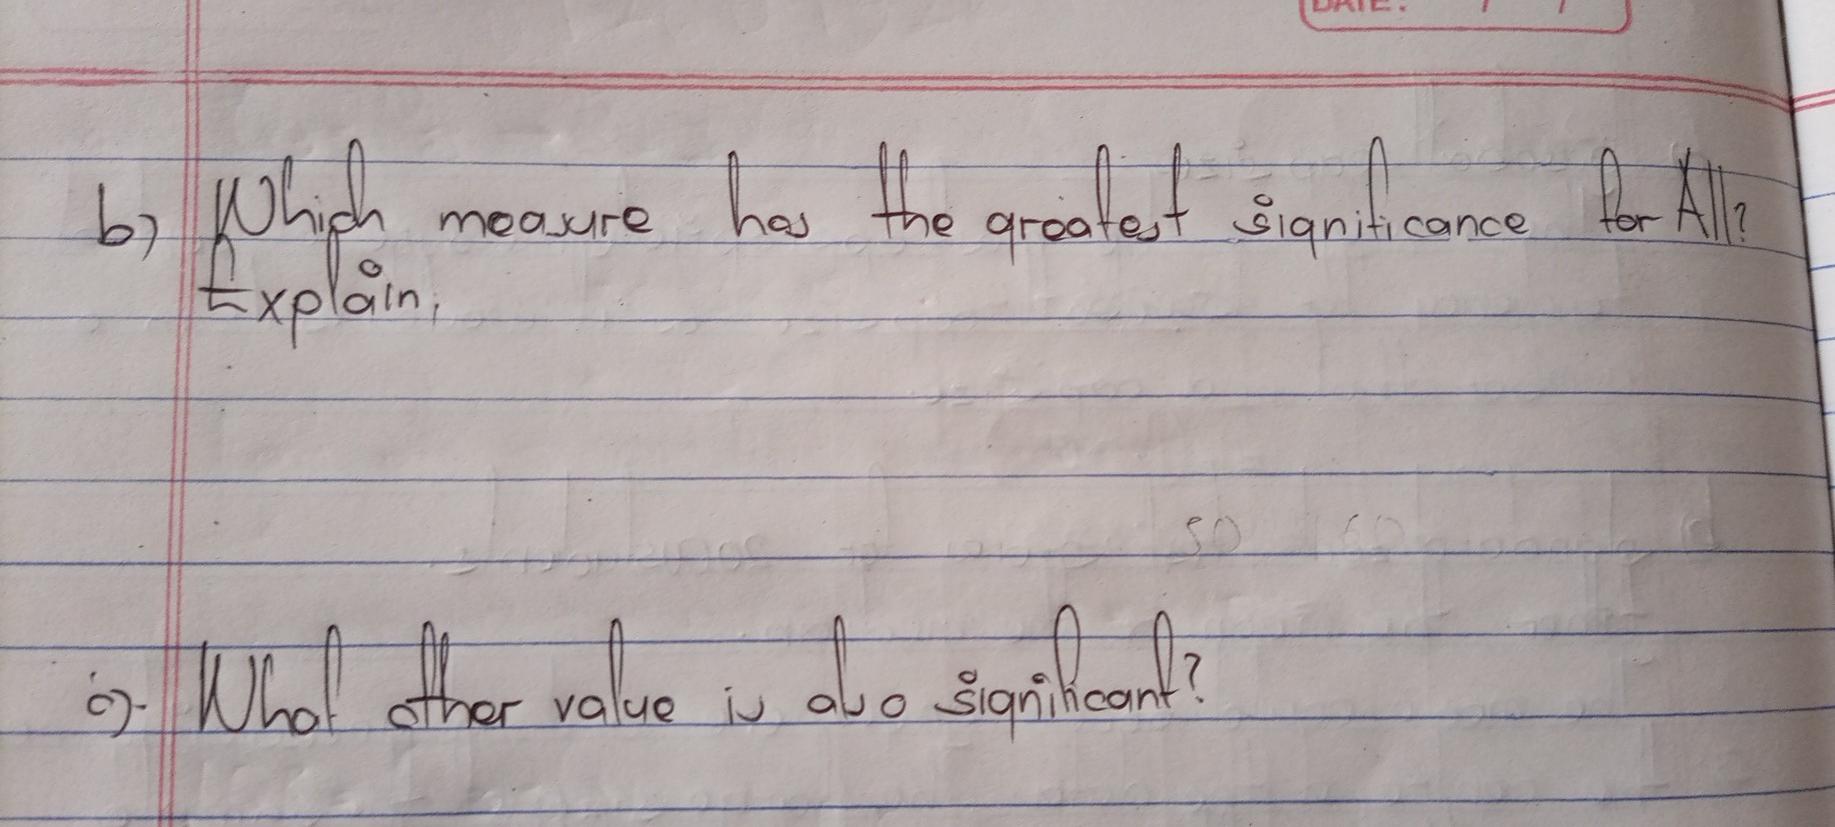 DATE: / /
b) Which measure has the greatest significance for All?
Explain,
c)- What other value is also significant?